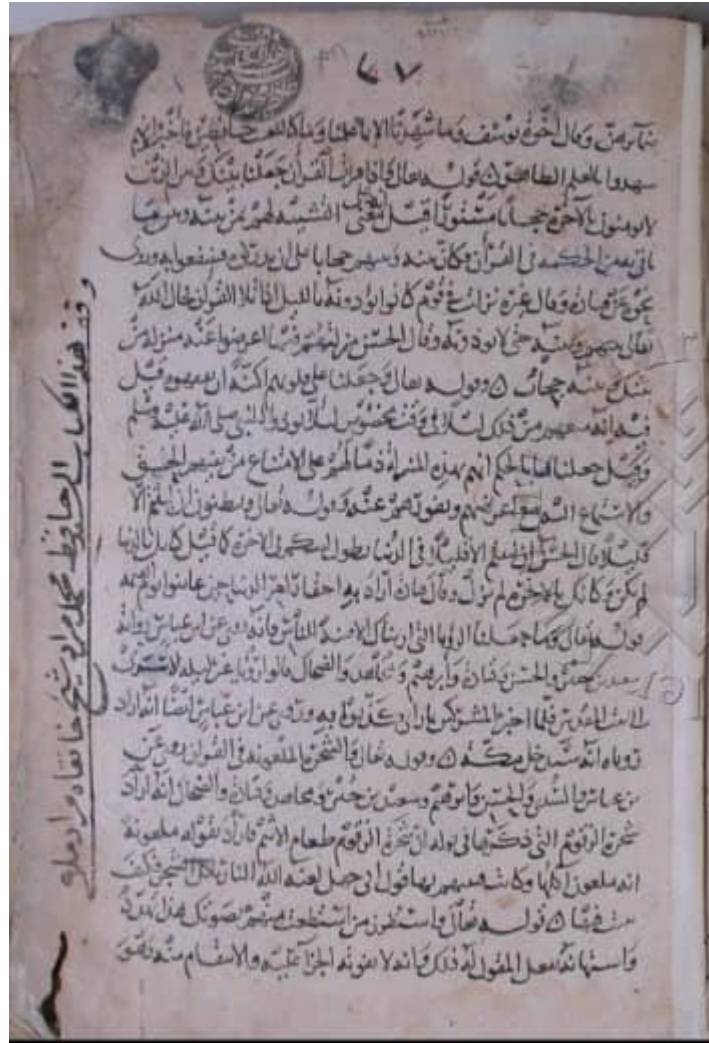 ٤٧
وقال اخوة يوسف وما شهدنا الا بما علمنا وما كنا للغيب حافظين فاخبر انهم
شهدوا بالعلم الظاهر قوله تعالى واذا قرات القران جعلنا بينك وبين الذين
لا يومنون بالاخرة حجابا مستورا قيل معنى التشبيه لهم بمن بينه وبين ما
ياتي به من الحكمة في القران فكان بينه وبينهم حجابا عن ان يدركوه فينتفعوا به وروى
نحوه عن قتادة وقال غيره نزلت في قوم كانوا يوذونه بالليل اذا تلا القران فحال الله
تعالى بينهم وبينه حتى لا يوذونه وقال الحسن منزلتهم فيما اعرضوا عنه منزلة من
بينك وبينه حجاب وقوله تعالى وجعلنا على قلوبهم اكنة ان يفقهوه قيل
فيه انه منعهم من ذلك ليلا في وقت مخصوص لئلا يوذوا النبي صلى الله عليه وسلم
وقيل جعلناها بالحكم انهم بهذه المنزلة ذما لهم على الامتناع من تفهم الحق
والاستماع اليه مع اعراضهم ونفورهم عنه وقوله تعالى وتظنون ان لبثتم الا
قليلا قال الحسن ان لبثتم الا قليلا في الدنيا لطول لبثكم في الاخرة كما قيل كانك بالدنيا
لم تكن وكانك بالاخرة لم تزل وقال قتادة اراد به احتقار امر الدنيا حين عاينوا يوم القيمة
قوله تعالى وما جعلنا الرويا التي اريناك الا فتنة للناس فانه روى عن ابن عباس رواية
سعيد بن جبير والحسن وقتادة وابرهيم ومجاهد والضحاك قالوا رويا عين ليلة الاسراء
الى بيت المقدس فلما اخبر المشركين بما راى كذبوا به وروى عن ابن عباس ايضا انه اراد
برؤياه انه سيدخل مكة وقوله تعالى والشجرة الملعونة في القران روى عن
ابن عباس والسدي والحسن وابرهيم وسعيد بن جبير ومجاهد وقتادة والضحاك انه اراد
شجرة الزقوم التي ذكرها في قوله ان شجرة الزقوم طعام الاثيم فاراد بقوله ملعونة
انه ملعون اكلها وكانت فتنتهم بها قول ابي جهل لعنه الله النار تاكل الشجر فكيف
تنبت فيها قوله تعالى واستفزز من استطعت منهم بصوتك هذا تهدد
واستهانة بفعل المقول له ذلك وانه لا يفوته الجزا عليه والانتقام منه
وقف هذا الكتاب الحافظ محمد مراد شيخ خانقاه مراد ملا